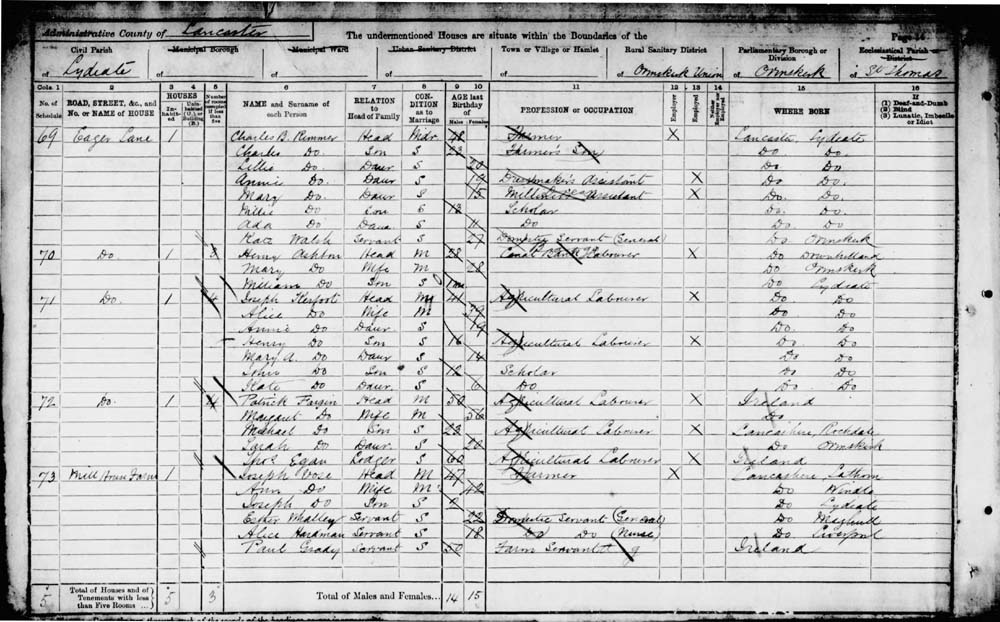 Administrative County of Lancaster The undermentioned Houses are situate within the Boundaries of the Page
Civil Parish Municipal Borough Municipal Ward Urban Sanitary District Town or Village or Hamlet Rural Sanitary District Parliamentary Borough or Division Ecclesiastical Parish or District
of Lydiate of of of of of Ormskirk Union of Ormskirk of St Thomas
Cols. 1 2 3 4 5 6 7 8 9 10 11 12 13 14 15 16
No. of Schedule ROAD, STREET, &c., and No. or NAME of HOUSE HOUSES Inhabited Uninhabited (U.) or Building (B.) Number of rooms occupied if less than five NAME and Surname of each Person RELATION to Head of Family CONDITION as to Marriage AGE last Birthday of Males Females PROFESSION or OCCUPATION Employer Employed Neither Employer nor Employed WHERE BORN (1) Deaf-and-Dumb (2) Blind (3) Lunatic, Imbecile or Idiot
69 Eager Lane 1 Charles B. Rimmer Head Widr 48 Farmer X Lancaster, Lydiate
Charles Do Son S 23 Farmer's Son Do Do
Lillie Do Daur S 20 Do Do
Annie Do Daur S 19 Dressmaker's Assistant X Do Do
Mary Do Daur S 15 Milliner's Assistant X Do Do
Willie Do Son S 13 Scholar Do Do
Ada Do Daur S 11 Do Do Do
Kate Walsh Servant S 27 Domestic Servant (General) Do Ormskirk
70 Do 1 3 Henry Ashton Head M 28 Canal Bank Labourer X Do Downholland
Mary Do Wife M 28 Do Ormskirk
William Do Son S Do Lydiate
71 Do 1 4 Joseph Kerfoot Head M 41 Agricultural Labourer X Do Do
Alice Do Wife M 39 Do Do
Annie Do Daur S 19 Do Do
Henry Do Son S 16 Agricultural Labourer X Do Do
Mary A. Do Daur S 14 Do Do
John Do Son S 12 Scholar Do Do
Kate Do Daur S 6 Do Do Do
72 Do 1 4 Patrick Head M 50 Agricultural Labourer X Ireland
Margaret Do Wife M 56 Do
Michael Do Son S 23 Agricultural Labourer X Lancashire, Rochdale
Sarah Do Daur S 20 Do Ormskirk
Thos Egan Lodger S 60 Agricultural Labourer X Ireland
73 Mill House Farm 1 Joseph Vose Head M 47 Farmer X Lancashire, Lathom
Ann Do Wife M 42 Do Windle
Joseph Do Son S Do Lydiate
Esther Whalley Servant S 22 Domestic Servant (General) Do Maghull
Alice Hardman Servant S 18 Do Do (Nurse) Do Liverpool
Paul Grady Servant S 50 Farm Servant Ireland
5 Total of Houses and of Tenements with less than Five Rooms 5 3 Total of Males and Females... 14 15